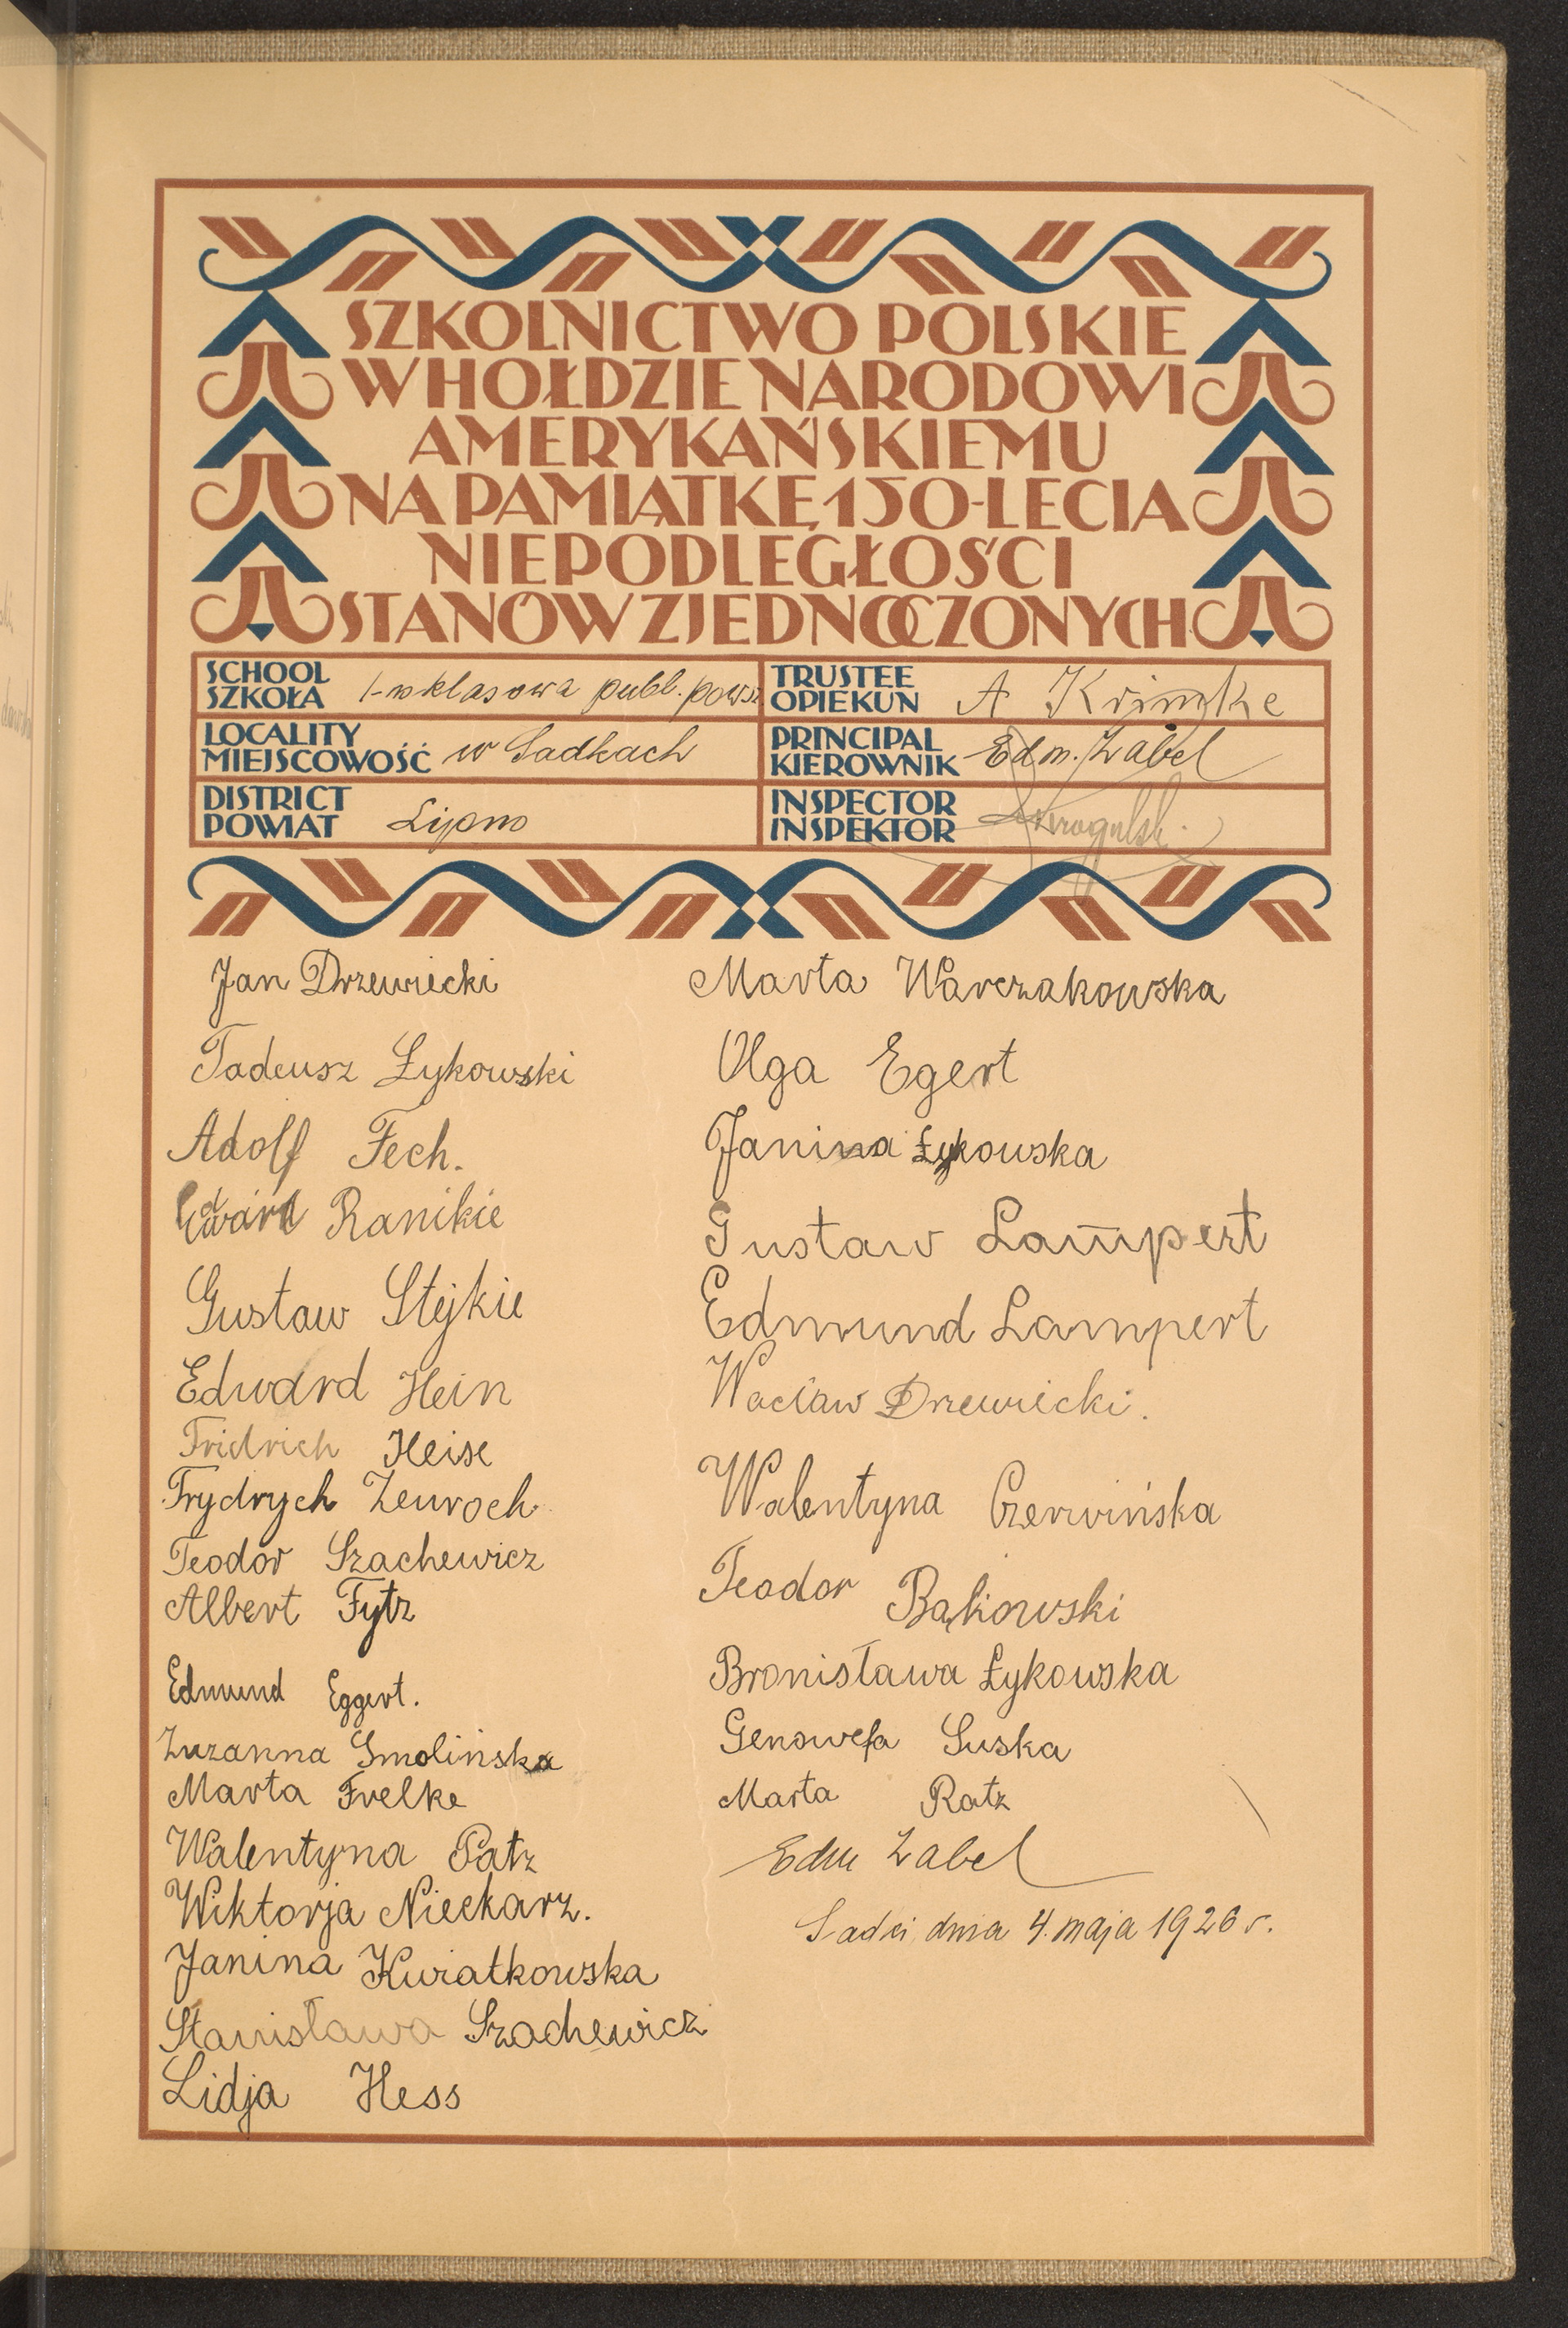 SZKOLNICTWO POLSKIE
W HOŁDZIE NARODOWI
AMERYKAŃSKIEMU
NA PAMIĄTKĘ 150-LECIA
NIEPODLEGŁOŚCI
STANÓW ZJEDNOCZONYCH
SCHOOL
SZKOŁA 1-no klasowa publ. powsz.
LOCALITY
MIEJSCOWOŚĆ w Sadkach
DISTRICT
POWIAT Lipno
TRUSTEE
OPIEKUN A Krimke
PRINCIPAL
KIEROWNIK Edm. Zabel
INSPECTOR
INSPEKTOR
Jan Drzewiecki
Tadeusz Łykowski
Adolf Fech.
Edward Ranikie
Gustaw Stejkie
Edward Hein
Fridrich Heise
Frydrych Zeuroch
Teodor Szachewicz
Albert Fytz
Edmund Eggert.
Zuzanna Smolińska
Marta Frelke
Walentyna Patz
Wiktorja Nieckarz.
Janina Kwiatkowska
Stanisława Szachewicz
Lidja Hess
Marta Warczakowska
Olga Egert
Janina Łykowska
Gustaw Lampert
Edmund Lampert
Wacław Drzewiecki.
Walentyna Czerwińska
Teodor Bąkowski
Bronisława Łykowska
Genowefa Suska
Marta Ratz
Edm Zabel
Sadki dnia 4. maja 1926 r.